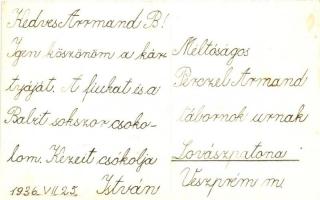 Kedves Arrmand B!
Igen köszönöm a kár-
tyáját. A fiukat és a
Balzit sokszor csoko-
lom. Kezeit csókolja
1936. VII. 25. István
Méltóságos
Perczel Armand
tábornok urnak
Lovászpatona
Veszprém m.